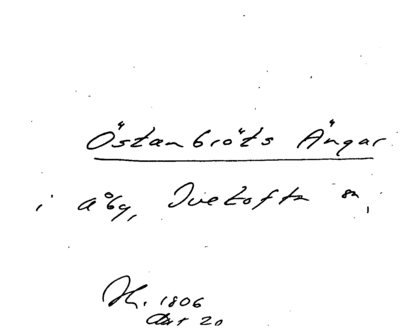 Östanbröts Ängar
i Åby, Ivetofta sn,
H. 1806
Akt 20